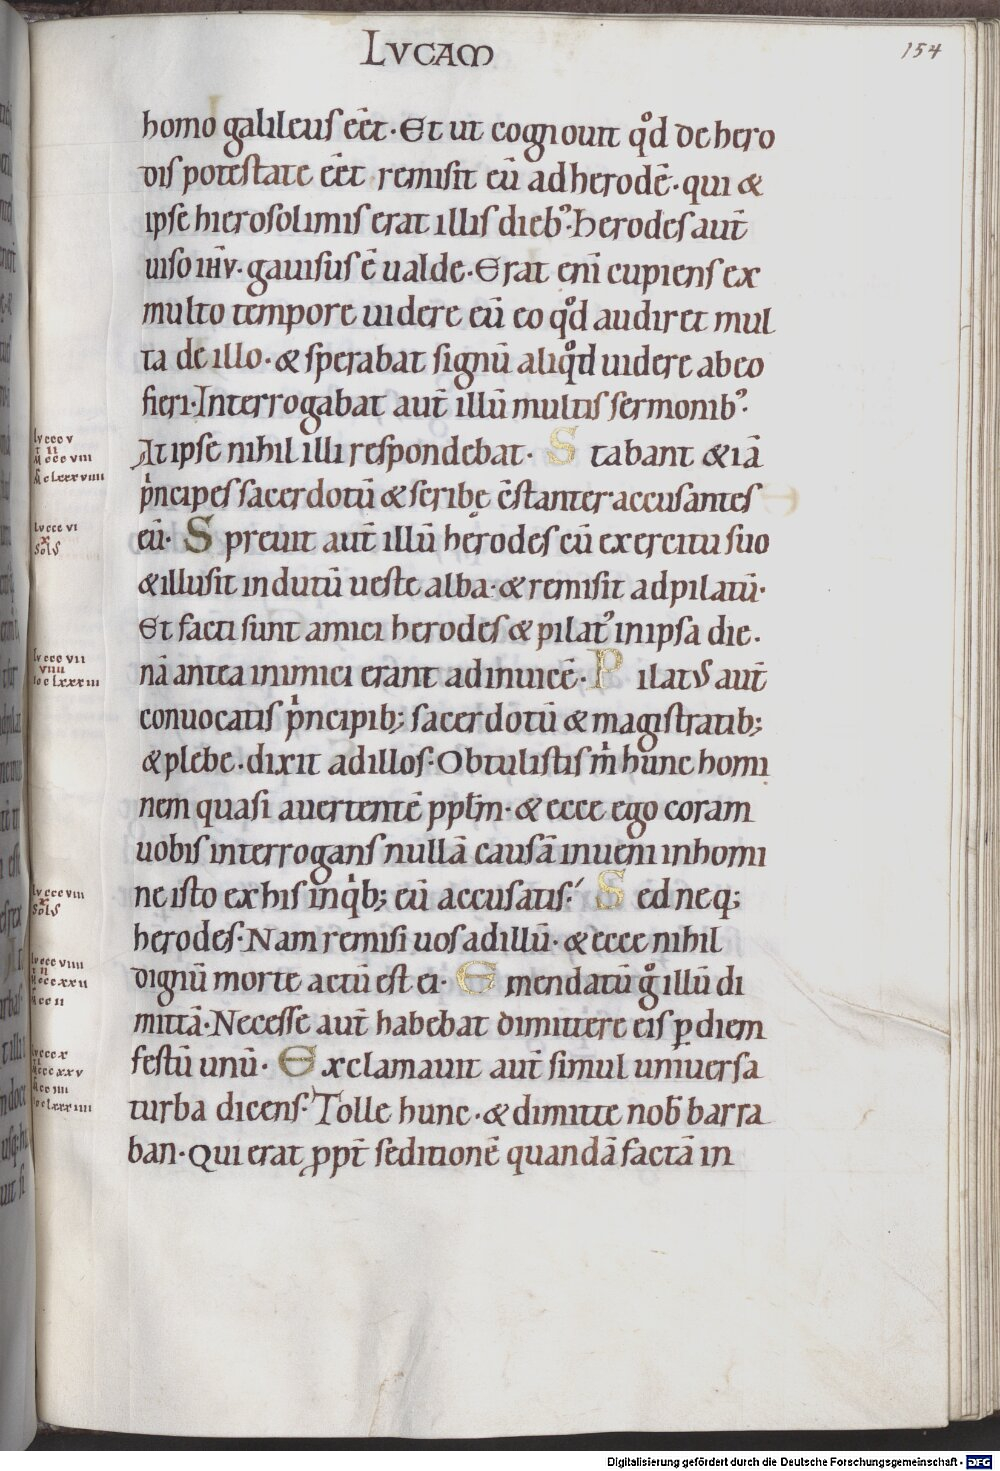 LVCAM
154
homo galileus eēt · Et ut cognouit qd̊ de hero
dis potestate eēt remisit eū ad herodē · qui &
ipse hierosolimis erat illis dieb᾽ · Herodes aut̄
uiso ih̄v · gauisus ē ualde · Erat eni̅ cupiens ex
multo tempore uidere eū eo qd̊ audiret mul
ta de illo · & sperabat signū aliqd̊ uidere ab eo
fieri · Interrogabat aut̄ illū multis sermonib᾽ ·
At ipse nihil illi respondebat · Stabant & iā
p̍ncipes sacerdotū & scribę c̄stanter accusantes
eū · Spreuit aut̄ illū herodes cū exercitu suo
& illusit indutū ueste alba · & remisit ad pilatū ·
Et facti sunt amici herodes & pilat᾽ in ipsa die ·
nā antea inimici erant ad inuicē · Pilatus aut̄
conuocatis p̍ncipib; sacerdotū & magistratib;
& plebe · dixit ad illos · Obtulistis m̍ hunc homi
nem quasi auertentē pptm̄ · & ecce ego coram
uobis interrogans nullā causā inueni in homi
ne isto ex his in q̍b; eū accusatis · Sed neq;
herodes · Nam remisi uos ad illū · & ecce nihil
dignū morte actū est ei · Emendatū g̊ illū di
mittā · Necesse aut̄ habebat dimittere eis ꝑ diem
festū unū · Exclamauit aut̄ simul uniuersa
turba dicens · Tolle hunc · & dimitte nob̄ barra
ban · Qui erat ꝓpt̄ seditionē quandā factā in
Digitalisierung gefördert durch die Deutsche Forschungsgemeinschaft - DFG